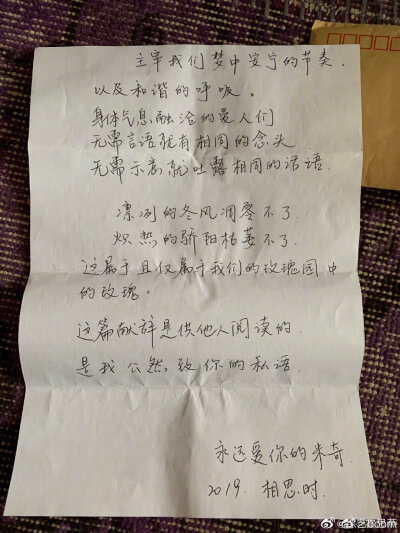 主宰我们梦中安宁的节奏，
以及和谐的呼吸。
身体气息融洽的爱人们
无需言语就有相同的念头
无需示意就吐露相同的话语.
凛冽的冬风凋零不了.
炽热的骄阳枯萎不了.
这属于且仅属于我们的玫瑰园中
的玫瑰。
这篇献辞是供他人阅读的
是我公然致你的私语.
永远爱你的米奇.
2019. 相思.时.